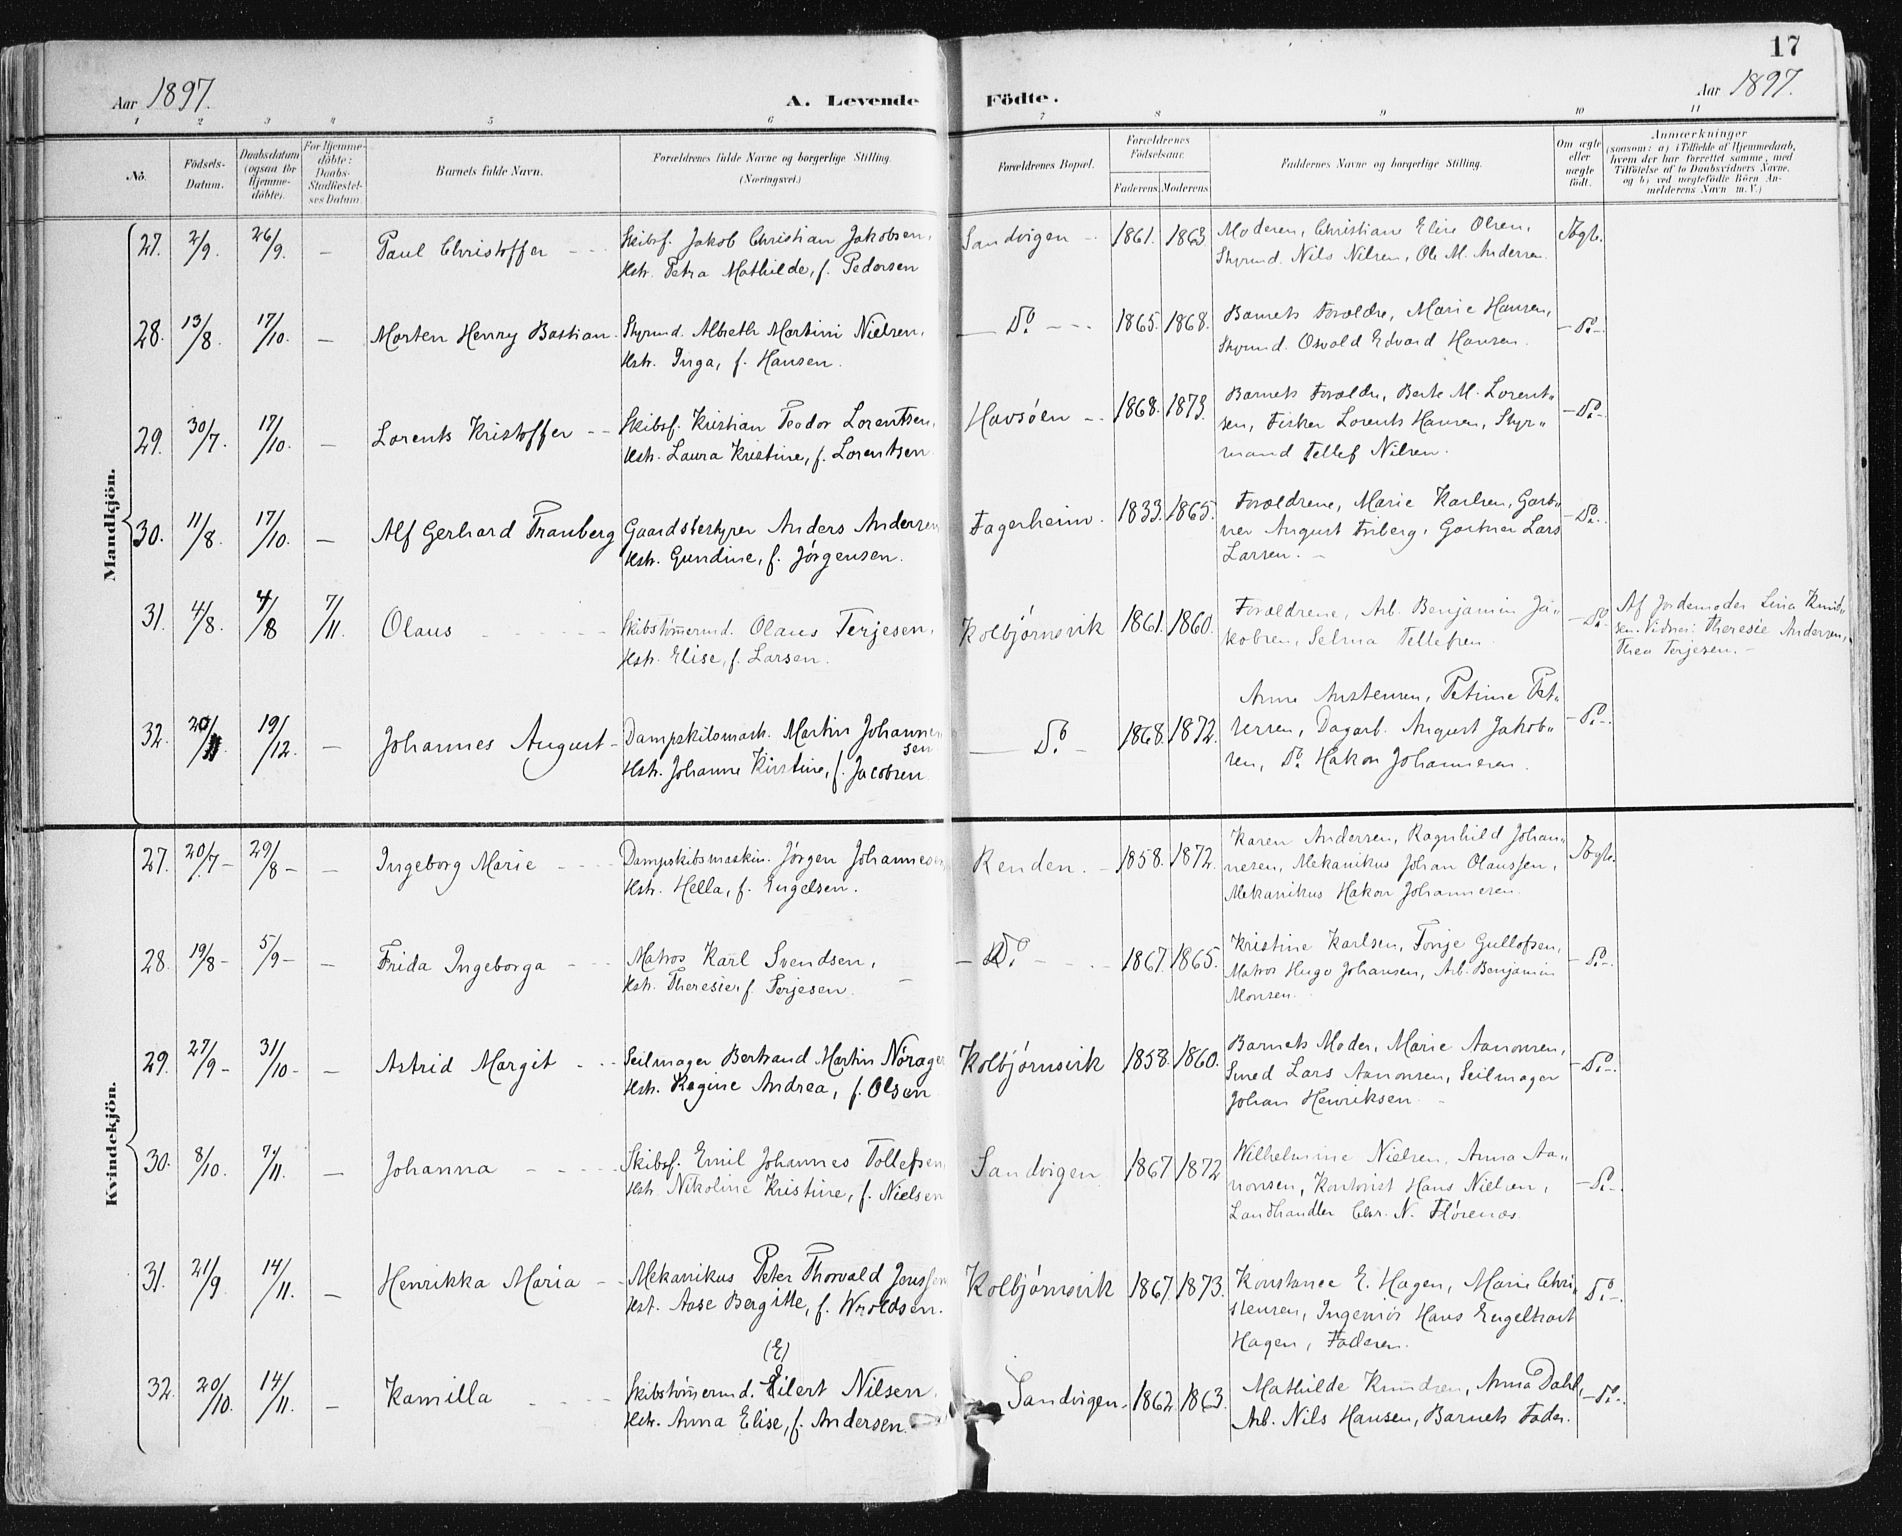 17
Aar 1897.
A. Levende Födte.
Aar 1897.
1 2 3 4 5 6 7 8 9 10 11
No.
Födsels-
Datum.
Daabsdatum
(ogsaa for
Hjemme-
döbte).
For Hjemme-
döbte:
Daabs-
Stadfæstel-
ses Datum.
Barnets fulde Navn.
Forældrenes fulde Navne og borgerlige Stilling.
(Næringsvei.)
Forældrenes Bopæl.
Forældrenes
Födselsaar.
Faderens Moderens
Faddernes Navne og borgerlige Stilling.
Om ægte
eller
uægte
født.
Anmærkninger
(saasom: a) i Tilfælde af Hjemmedaab,
hvem der har forrettet samme, med
Tilföielse af to Daabsvidners Navne,
og b) ved uægtefödte Börn An-
melderens Navn m. V.)
Mandkjön.
27. 2/9. 26/9. – Paul Christoffer – – Skibsf. Jakob Christian Jakobsen, Sandvigen – 1861. 1863 Moderen, Christiane Elise Olsen, Ægte.
Hstr. Petra Mathilde, f. Pedersen Styrmd. Nils Nilsen, Ole M. Andersen.
28. 13/8. 17/10. – Morten Henry Bastian Styrmd. Albreth Martini Nielsen, – Do – – 1865. 1868. Barnets Forældre, Marie Hansen, – Do –
Hstr. Inga, f. Hansen. Styrmd. Osvald Edvard Hansen.
29. 30/7. 17/10. – Lorents Kristoffer – – Skibsf. Kristian Teodor Lorentsen, Havsöen – 1868. 1873. Barnets Forældre, Berte M. Lorent-
Hstr. Laura Kristine, f. Lorentsen. sen, Fisker Lorents Hansen, Styr- – Do –
mand Tellef Nilsen.
30. 11/8. 17/10. – Alf Gerhard Tranberg Gaardsbestyrer Anders Andersen Fagerheim. 1833. 1865. Forældrene, Marie Karlsen, Gart-
Hstr. Gundine, f. Jörgensen. ner August Friberg, Gartner Lars – Do –
Larsen. –
31. 4/8. 4/8 7/11. Olaus – – – Skibstömrmd. Olaus Terjesen, Kolbjörnsvik 1861. 1860. Forældrene, Arb. Benjamin Ja- – Do – Af Jordemoder Lina Knud-
Hstr. Elise, f. Larsen. kobsen, Selma Tellefsen. sen. Vidner: Theresie Andersen,
Thea Terjesen. –
32. 20/11. 19/12. – Johannes August – Dampskibsmask. Martin Johannes – Do – 1868. 1872. Anne Austensen, Petrine Pet-
sen tersen, Dagarb. August Jakob- – Do –
Hstr. Johanne Kirstine, f. Jacobsen. sen, Do Hakon Johannesen.
Kvindekjön.
27. 20/7 – 29/8 – – Ingeborg Marie – – Dampskibsmaskin. Jörgen Johannesen, Renden. – 1858. 1872. Karen Andersen, Ragnhild Johan- Ægte.
Hstr. Hella, f. Engelsen. nesen, Mekanikus Johan Olaussen,
Mekanikus Hakon Johannesen.
28. 19/8 – 5/9 – – Frida Ingeborga – – Matros Karl Svendsen, – Do – – 1867. 1865. Kristine Karlsen, Torije Gullofsen, – Do –
Hstr. Theresie, f. Terjesen. – Matros Hugo Johansen, Arb. Benjamin
Monsen.
29. 27/9 – 31/10 – – Astrid Margit – – Seilmager Bertrand Martin Nörager Kolbjörnsvik 1858. 1860. Barnets Moder, Marie Aanonsen, – Do –
Hstr. Regine Andrea, f. Olsen. Smed Lars Aanonsen, Seilmager
Johan Henriksen. –
30. 8/10. 7/11. – Johanna – – – Skibsf. Emil Johannes Tollefsen, Sandvigen 1867 1872 Wilhelmine Nielsen, Anna Aa-
Hstr. Nikoline Kristine, f. Nielsen nonsen, Kontorist Hans Nielsen, – Do –
Landhandler Chr. N. Flörenæs.
31. 21/9. 14/11. – Henrikka Maria – Mekanikus Peter Thorvald Jenssen Kolbjörnsvik 1867. 1873. Konstance E. Hagen, Marie Chri- Do –
Hst. Aase Bergitte, f. Woldsen. stensen, Ingeniör Hans Engelhart
Hagen, Faderen.
(E)
32. 20/10. 14/11. – Kamilla – – Skibstömrmd. Eilert Nilsen, Sandvigen. 1862 1863. Mathilde Knudsen, Anna Dahl, – Do –
Hstr. Anna Elise, f. Andersen. Arb. Nils Hansen, Barnets Fader.